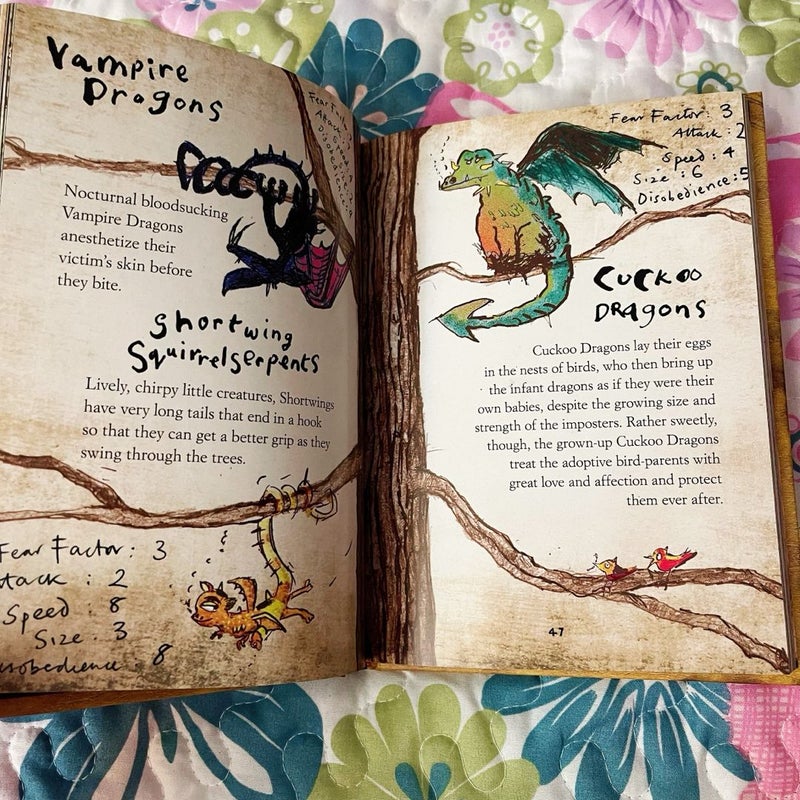 Vampire
Dragons
Fear Factor:
Attack :
Nocturnal bloodsucking
Vampire Dragons
anesthetize their
victim's skin before
they bite.
Shortwing
Squirrelserpents
Lively, chirpy little creatures, Shortwings
have very long tails that end in a hook
so that they can get a better grip as they
swing through the trees.
Fear Factor: 3
ttack : 2
Speed : 8
Size : 3
isobedience : 8
Fear Factor: 3
Attack: 2
Speed : 4
Size : 6
Disobedience: 5
Cuckoo
Dragons
Cuckoo Dragons lay their eggs
in the nests of birds, who then bring up
the infant dragons as if they were their
own babies, despite the growing size and
strength of the imposters. Rather sweetly,
though, the grown-up Cuckoo Dragons
treat the adoptive bird-parents with
great love and affection and protect
them ever after.
47